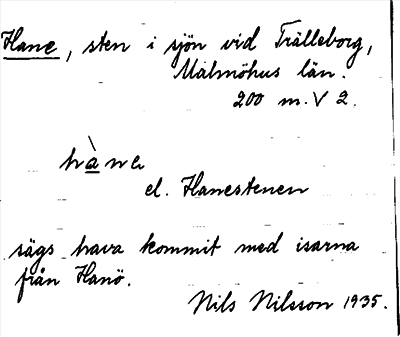 Hane, sten i sjön vid Trälleborg,
Malmöhus län.
200 m. V 2.
hànɐ
el. Hanestenen
sägs hava kommit med isarna
från Hanö.
Nils Nilsson 1935.